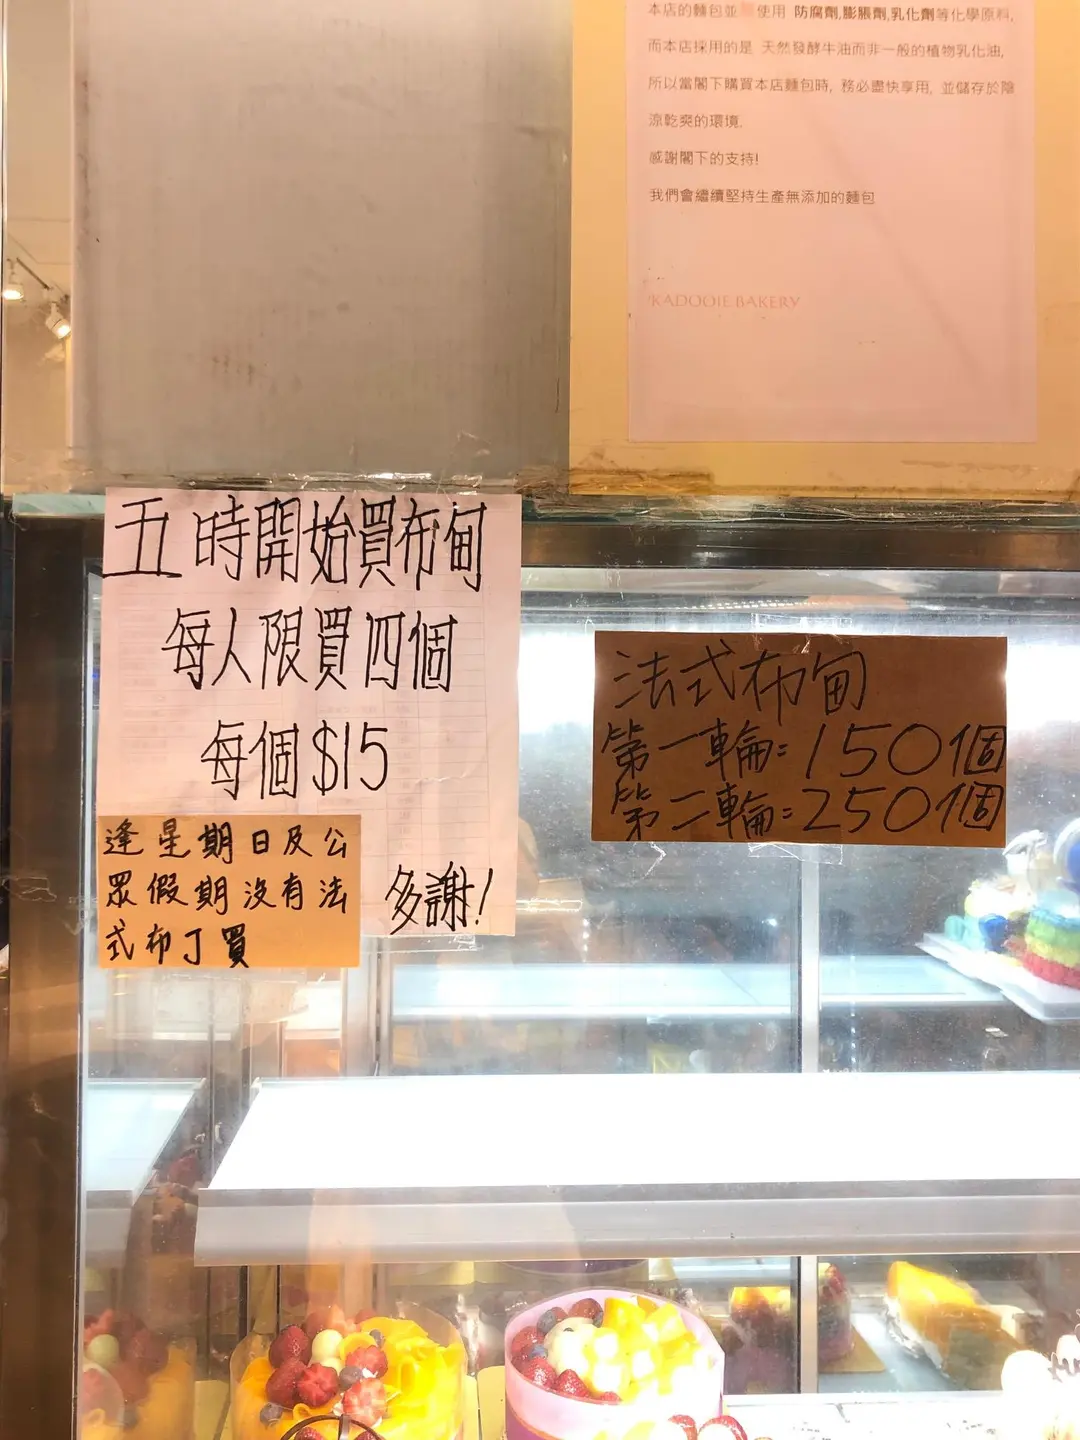 本店的麵包並 使用 防腐劑,膨脹劑,乳化劑等化學原料,
而本店採用的是 天然發酵牛油而非一般的植物乳化油,
所以當閣下購買本店麵包時, 務必盡快享用, 並儲存於陰
涼乾爽的環境.
感謝閣下的支持!
我們會繼續堅持生產無添加的麵包
KADOOIE BAKERY
五時開始買布甸
每人限買四個
每個$15
多謝!
逢星期日及公
眾假期沒有法
式布丁買
法式布甸
第一輪:150個
第二輪:250個